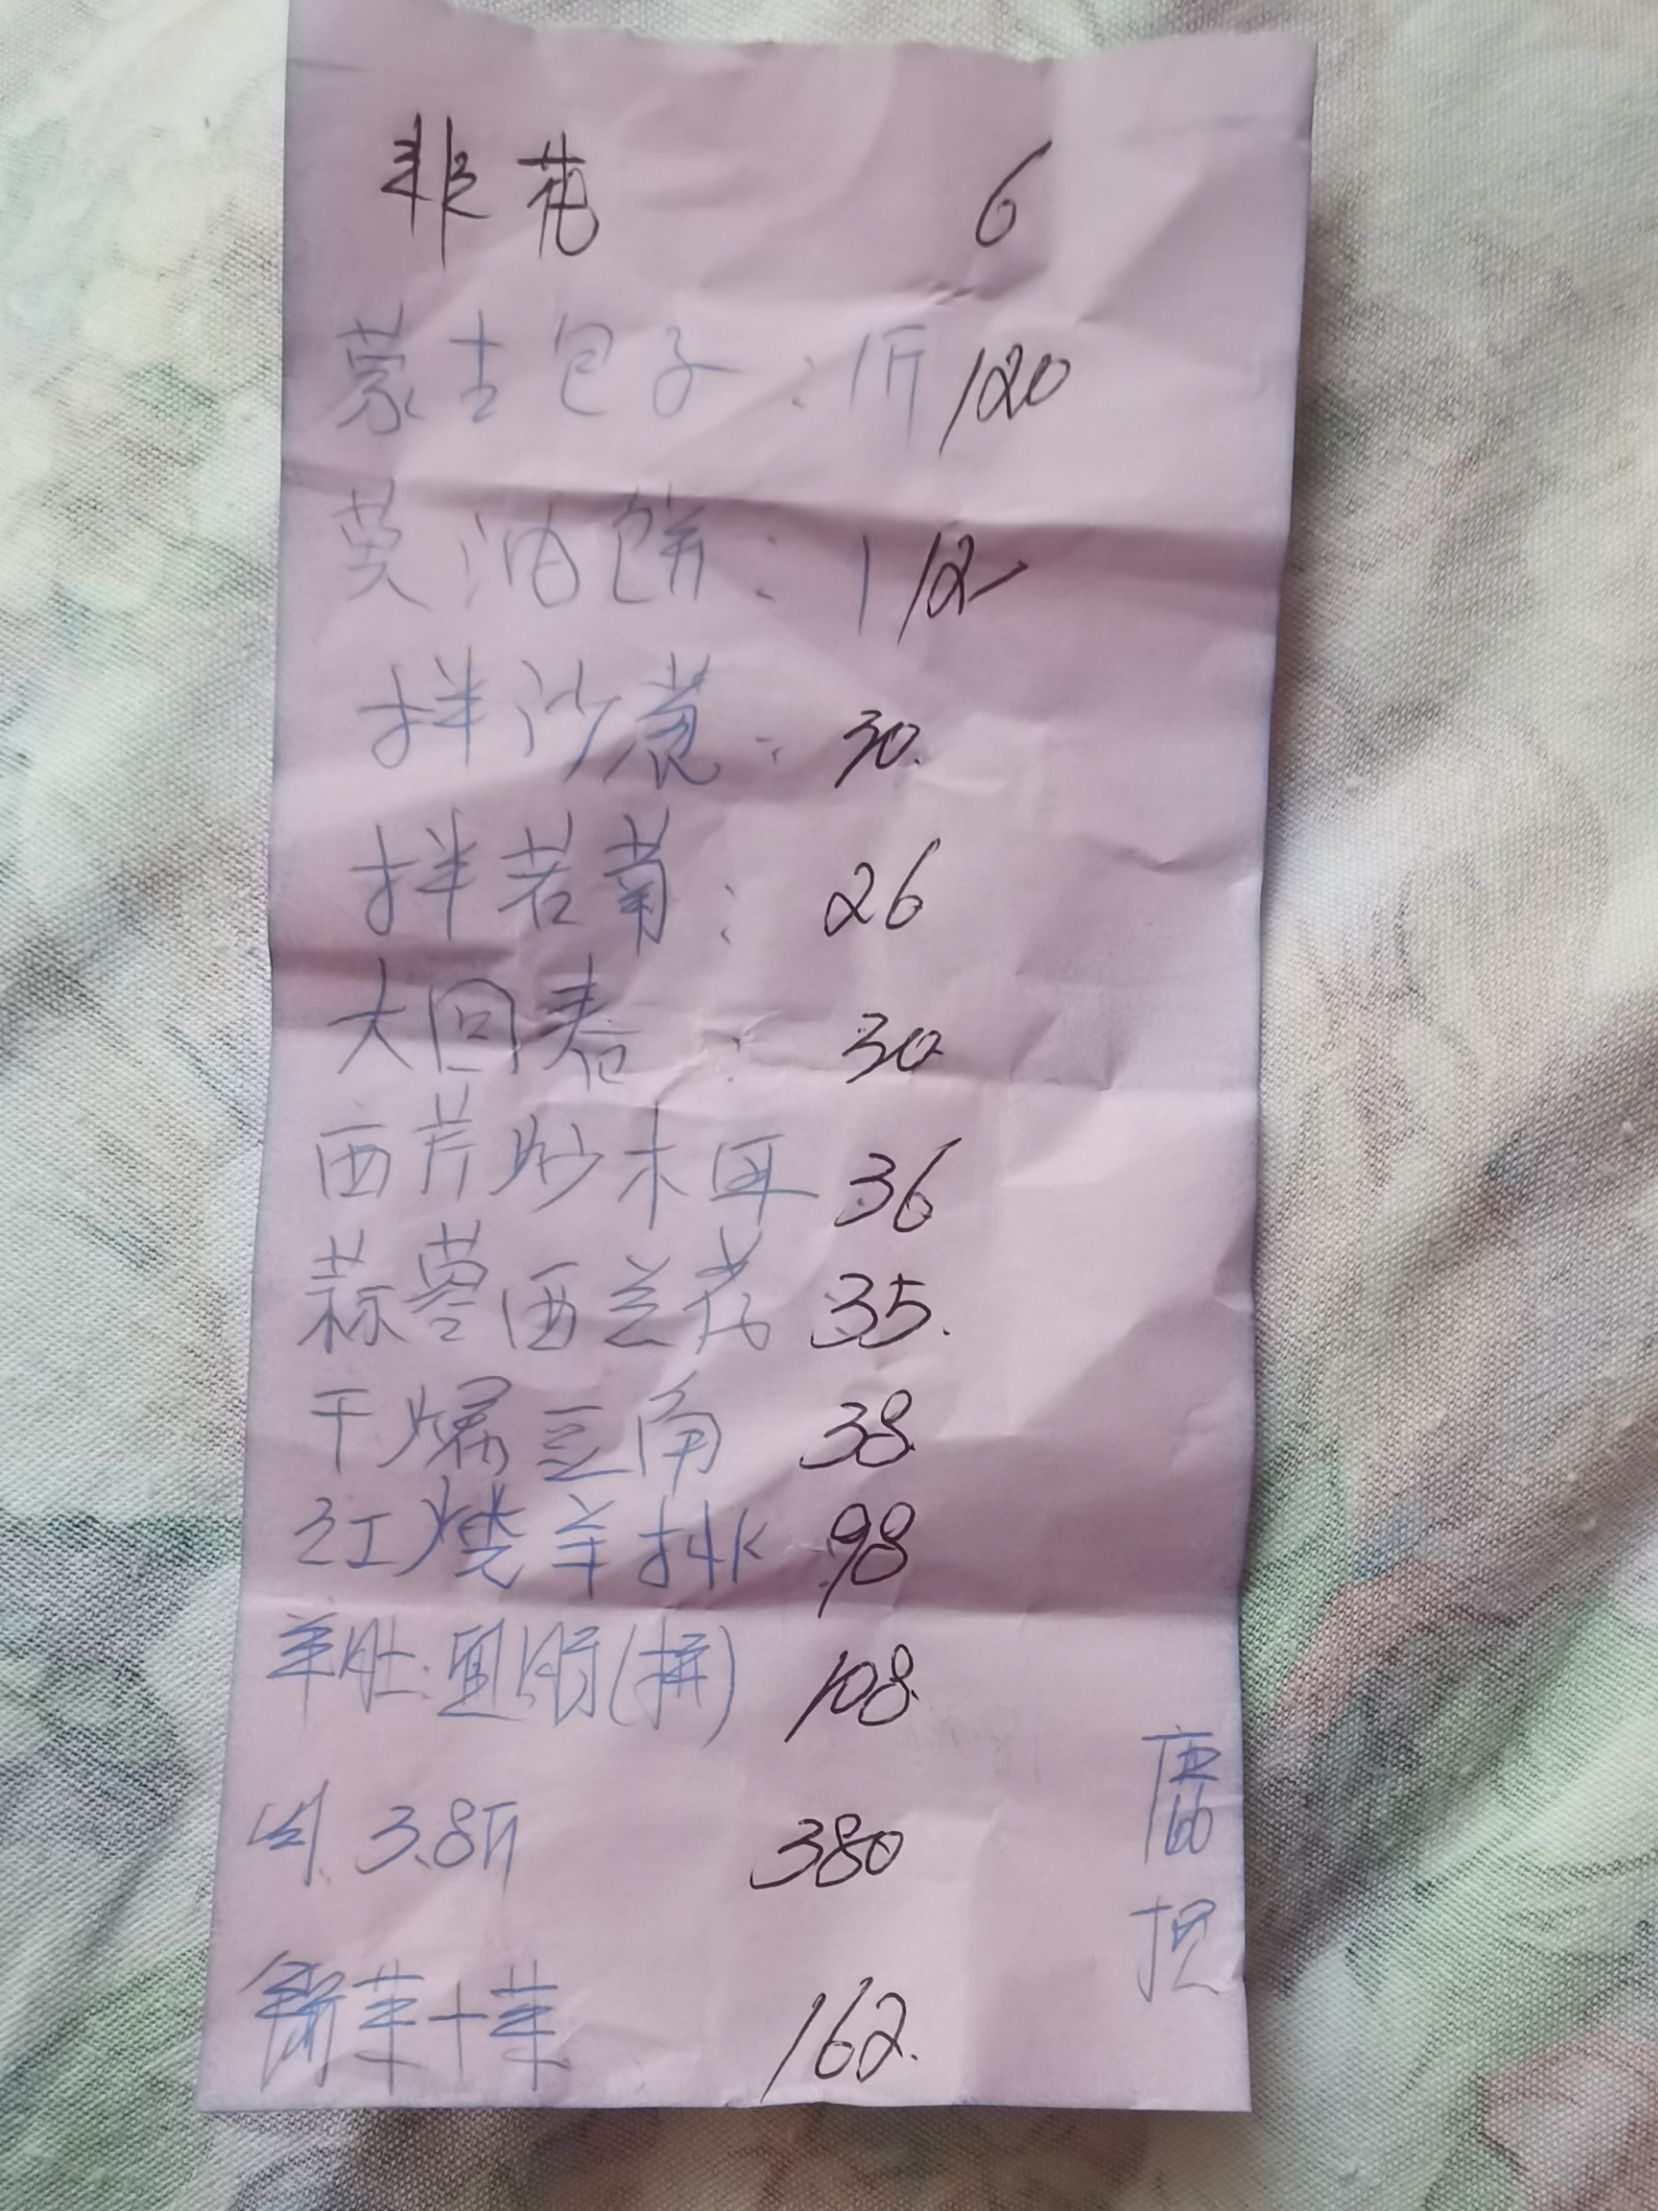 韭花 6
蒙古包子:1斤 120
葱油饼:1 12
拌沙葱:30.
拌苦菊:26
大回春:30
西芹炒木耳 36
蒜蓉西兰花 35.
干煸豆角 38.
红烧羊排 98
羊肚.血肠(拼) 108.
肉 3.8斤 380
162.